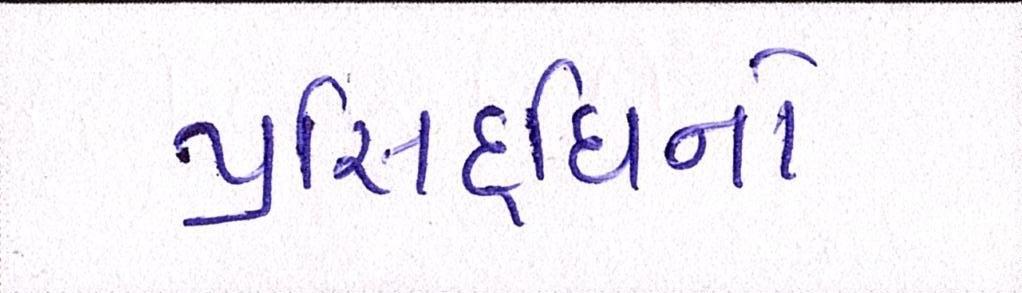 પ્રસિદ્ધિનો